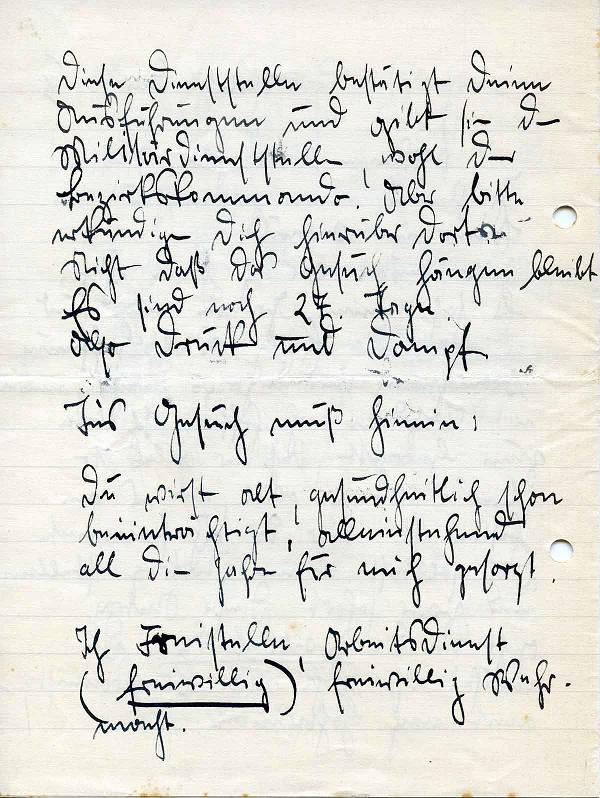 Diese Dienststelle bestätigt Deine
Ausführungen und gibt sie d-
Militärdienststelle, wohl d-
Bezirkskommando. Aber bitte
erkundige Dich hierüber dort.
Nicht daß das Gesuch hängen bleibt
Es sind noch 27 Tage.
Also Druck und Dampf
Ins Gesuch muß hinein:
Du wirst alt, gesundheitlich schon
beeinträchtigt, alleinstehend
all die Jahre für mich gesorgt.
Ich Freistelle, Arbeitsdienst
(freiwillig) freiwillig Wehr-
macht.